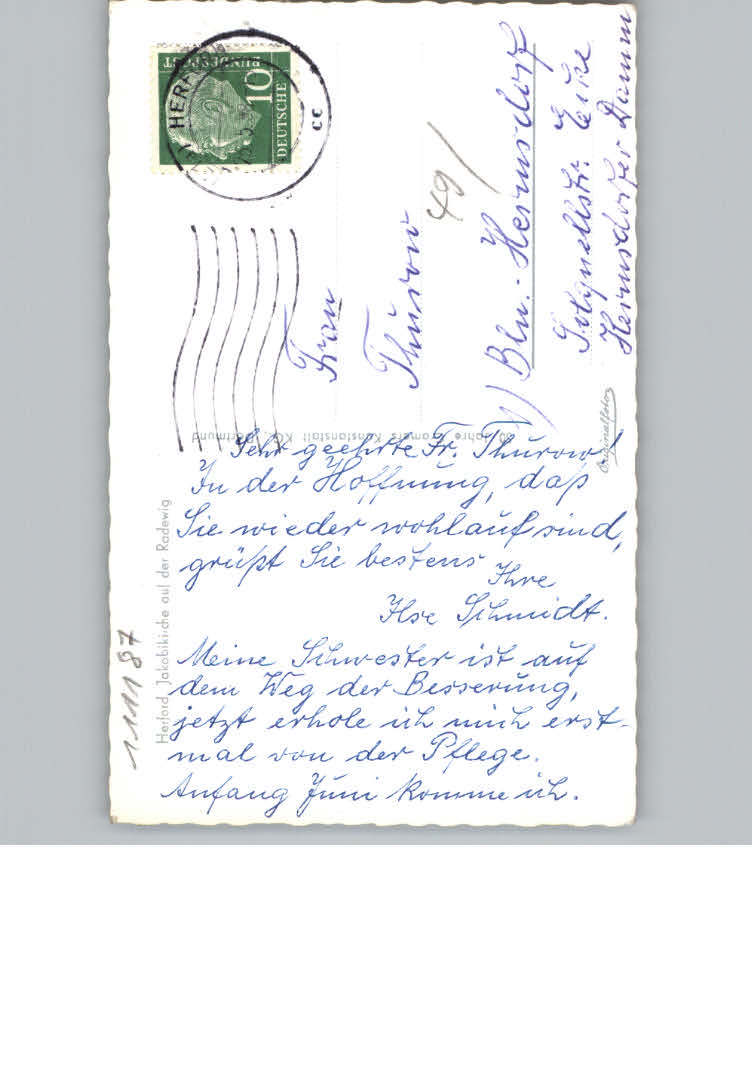 Sehr geehrte Fr. Thurow!
In der Hoffnung, daß
Sie wieder wohlauf sind,
grüßt Sie bestens
Ihre
Ilse Schmidt.
Meine Schwester ist auf
dem Weg der Besserung,
jetzt erhole ich mich erst-
mal von der Pflege.
Anfang Juni komme ich.
Frau
Thurow
49/
1) Bln.-Hermsdorf
Solquellstr. Ecke
Hermsdorfer Damm
DEUTSCHE
BUNDESPOST
10
HERFORD
cc
Jahre Cramers Kunstanstalt KG., Dortmund
Originalfoto
Herford, Jakobikirche auf der Radewig